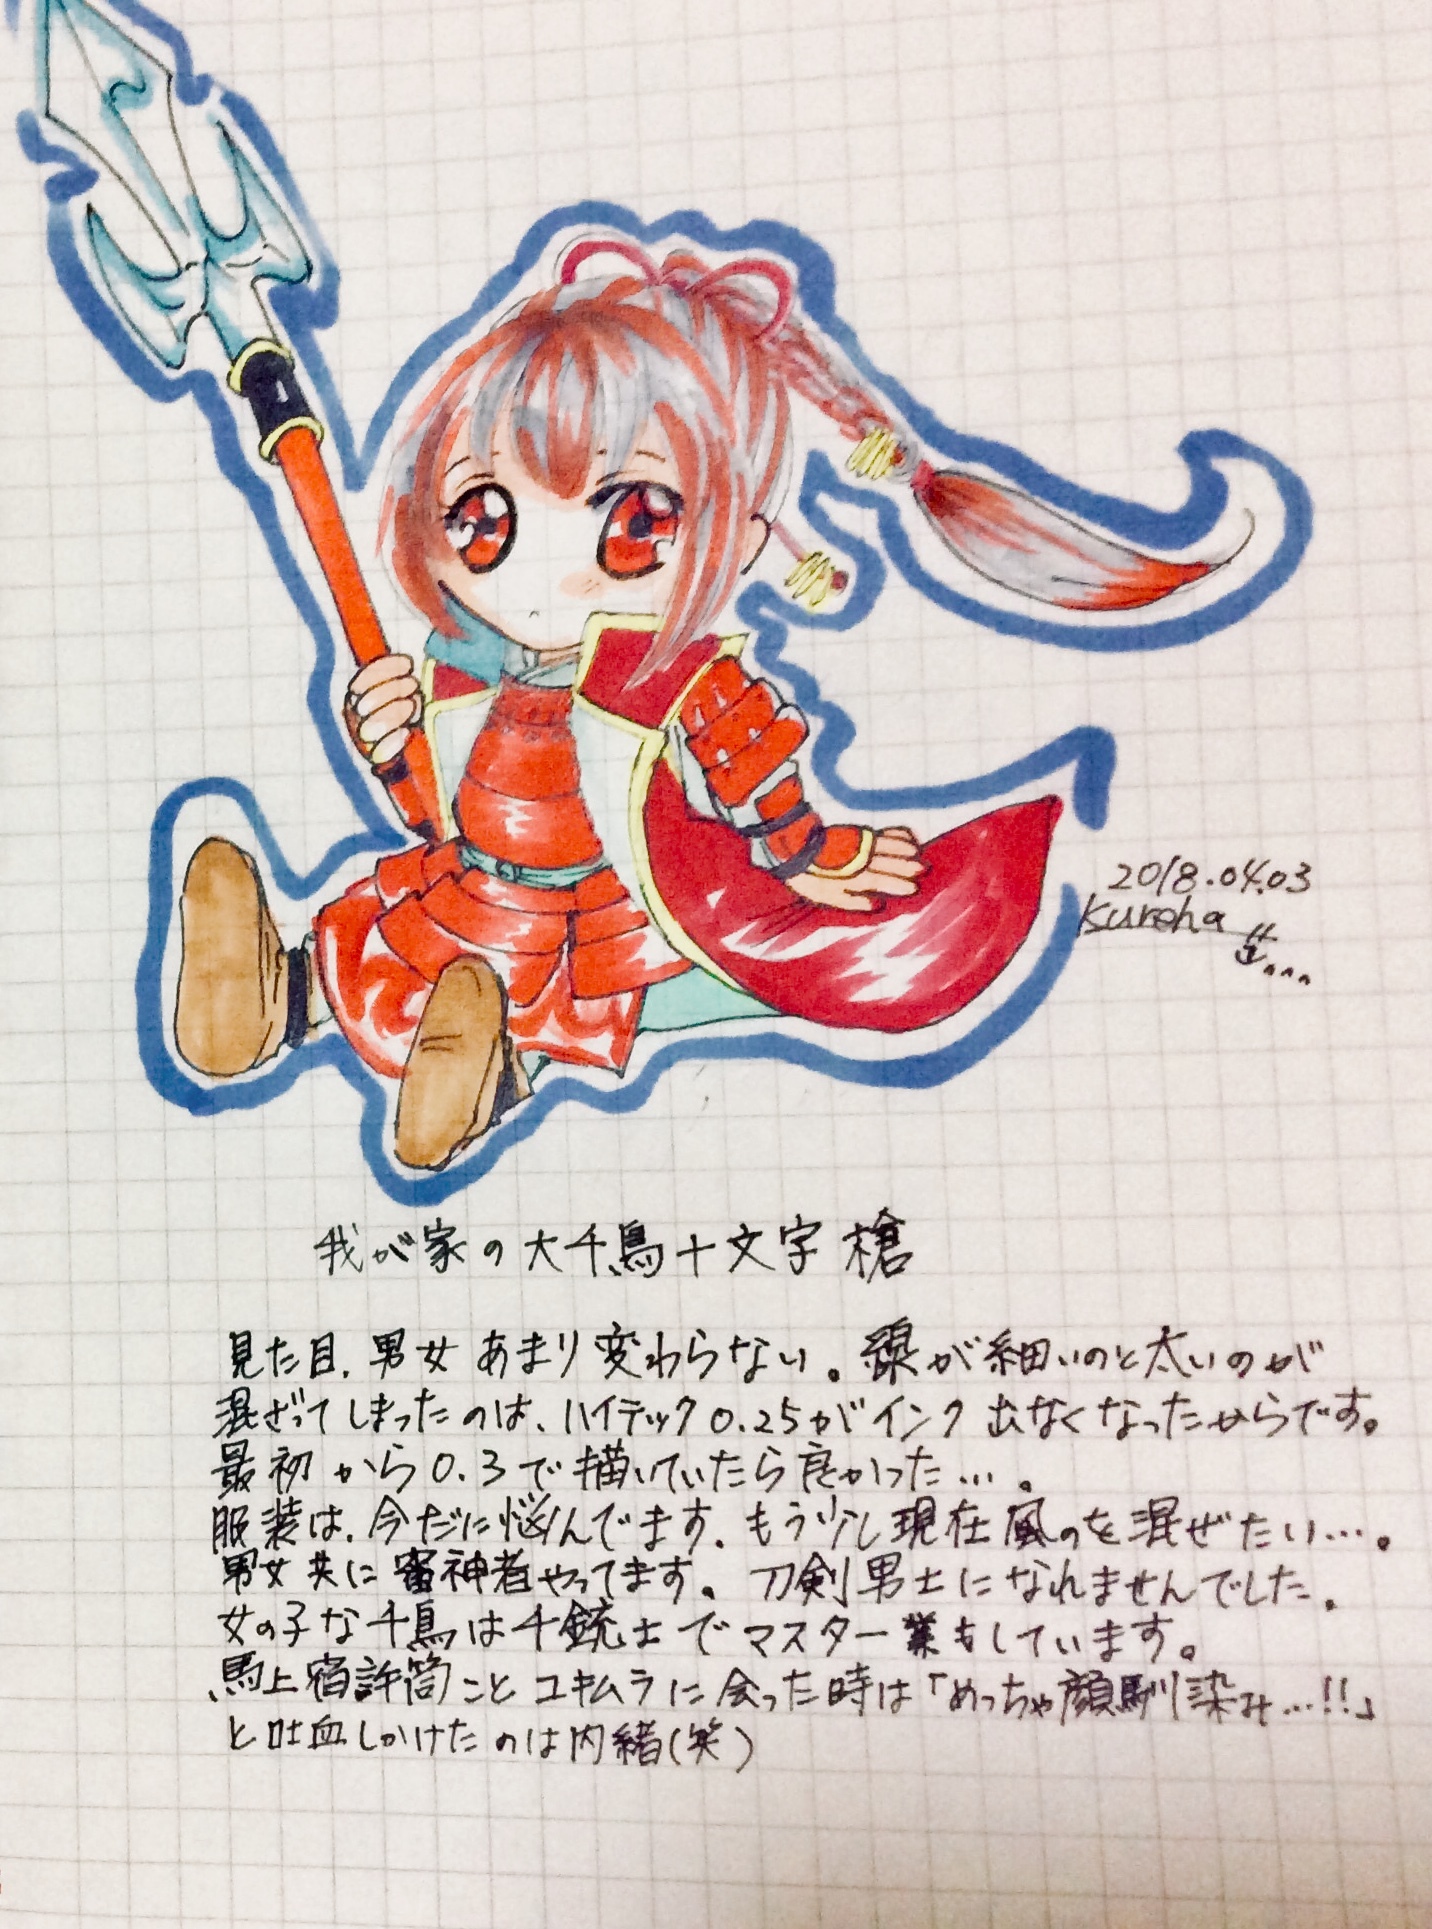 2018.04.03
Kureha
我が家の大千鳥十文字槍
見た目、男女あまり変わらない。線が細いのと太いのが
混ざってしまったのは、ハイテック0.25がインク出なくなったからです。
最初から0.3で描いていたら良かった…。
服装は、今だに悩んでます、もう少し現在風のを混ぜたい…。
男女共に審神者やってます。刀剣男士になれませんでした。
女の子な千鳥は千銃士でマスター業もしています。
馬上宿許筒ことユキムラに会った時は「めっちゃ顔馴染み…!!」
と吐血しかけたのは内緒(笑)